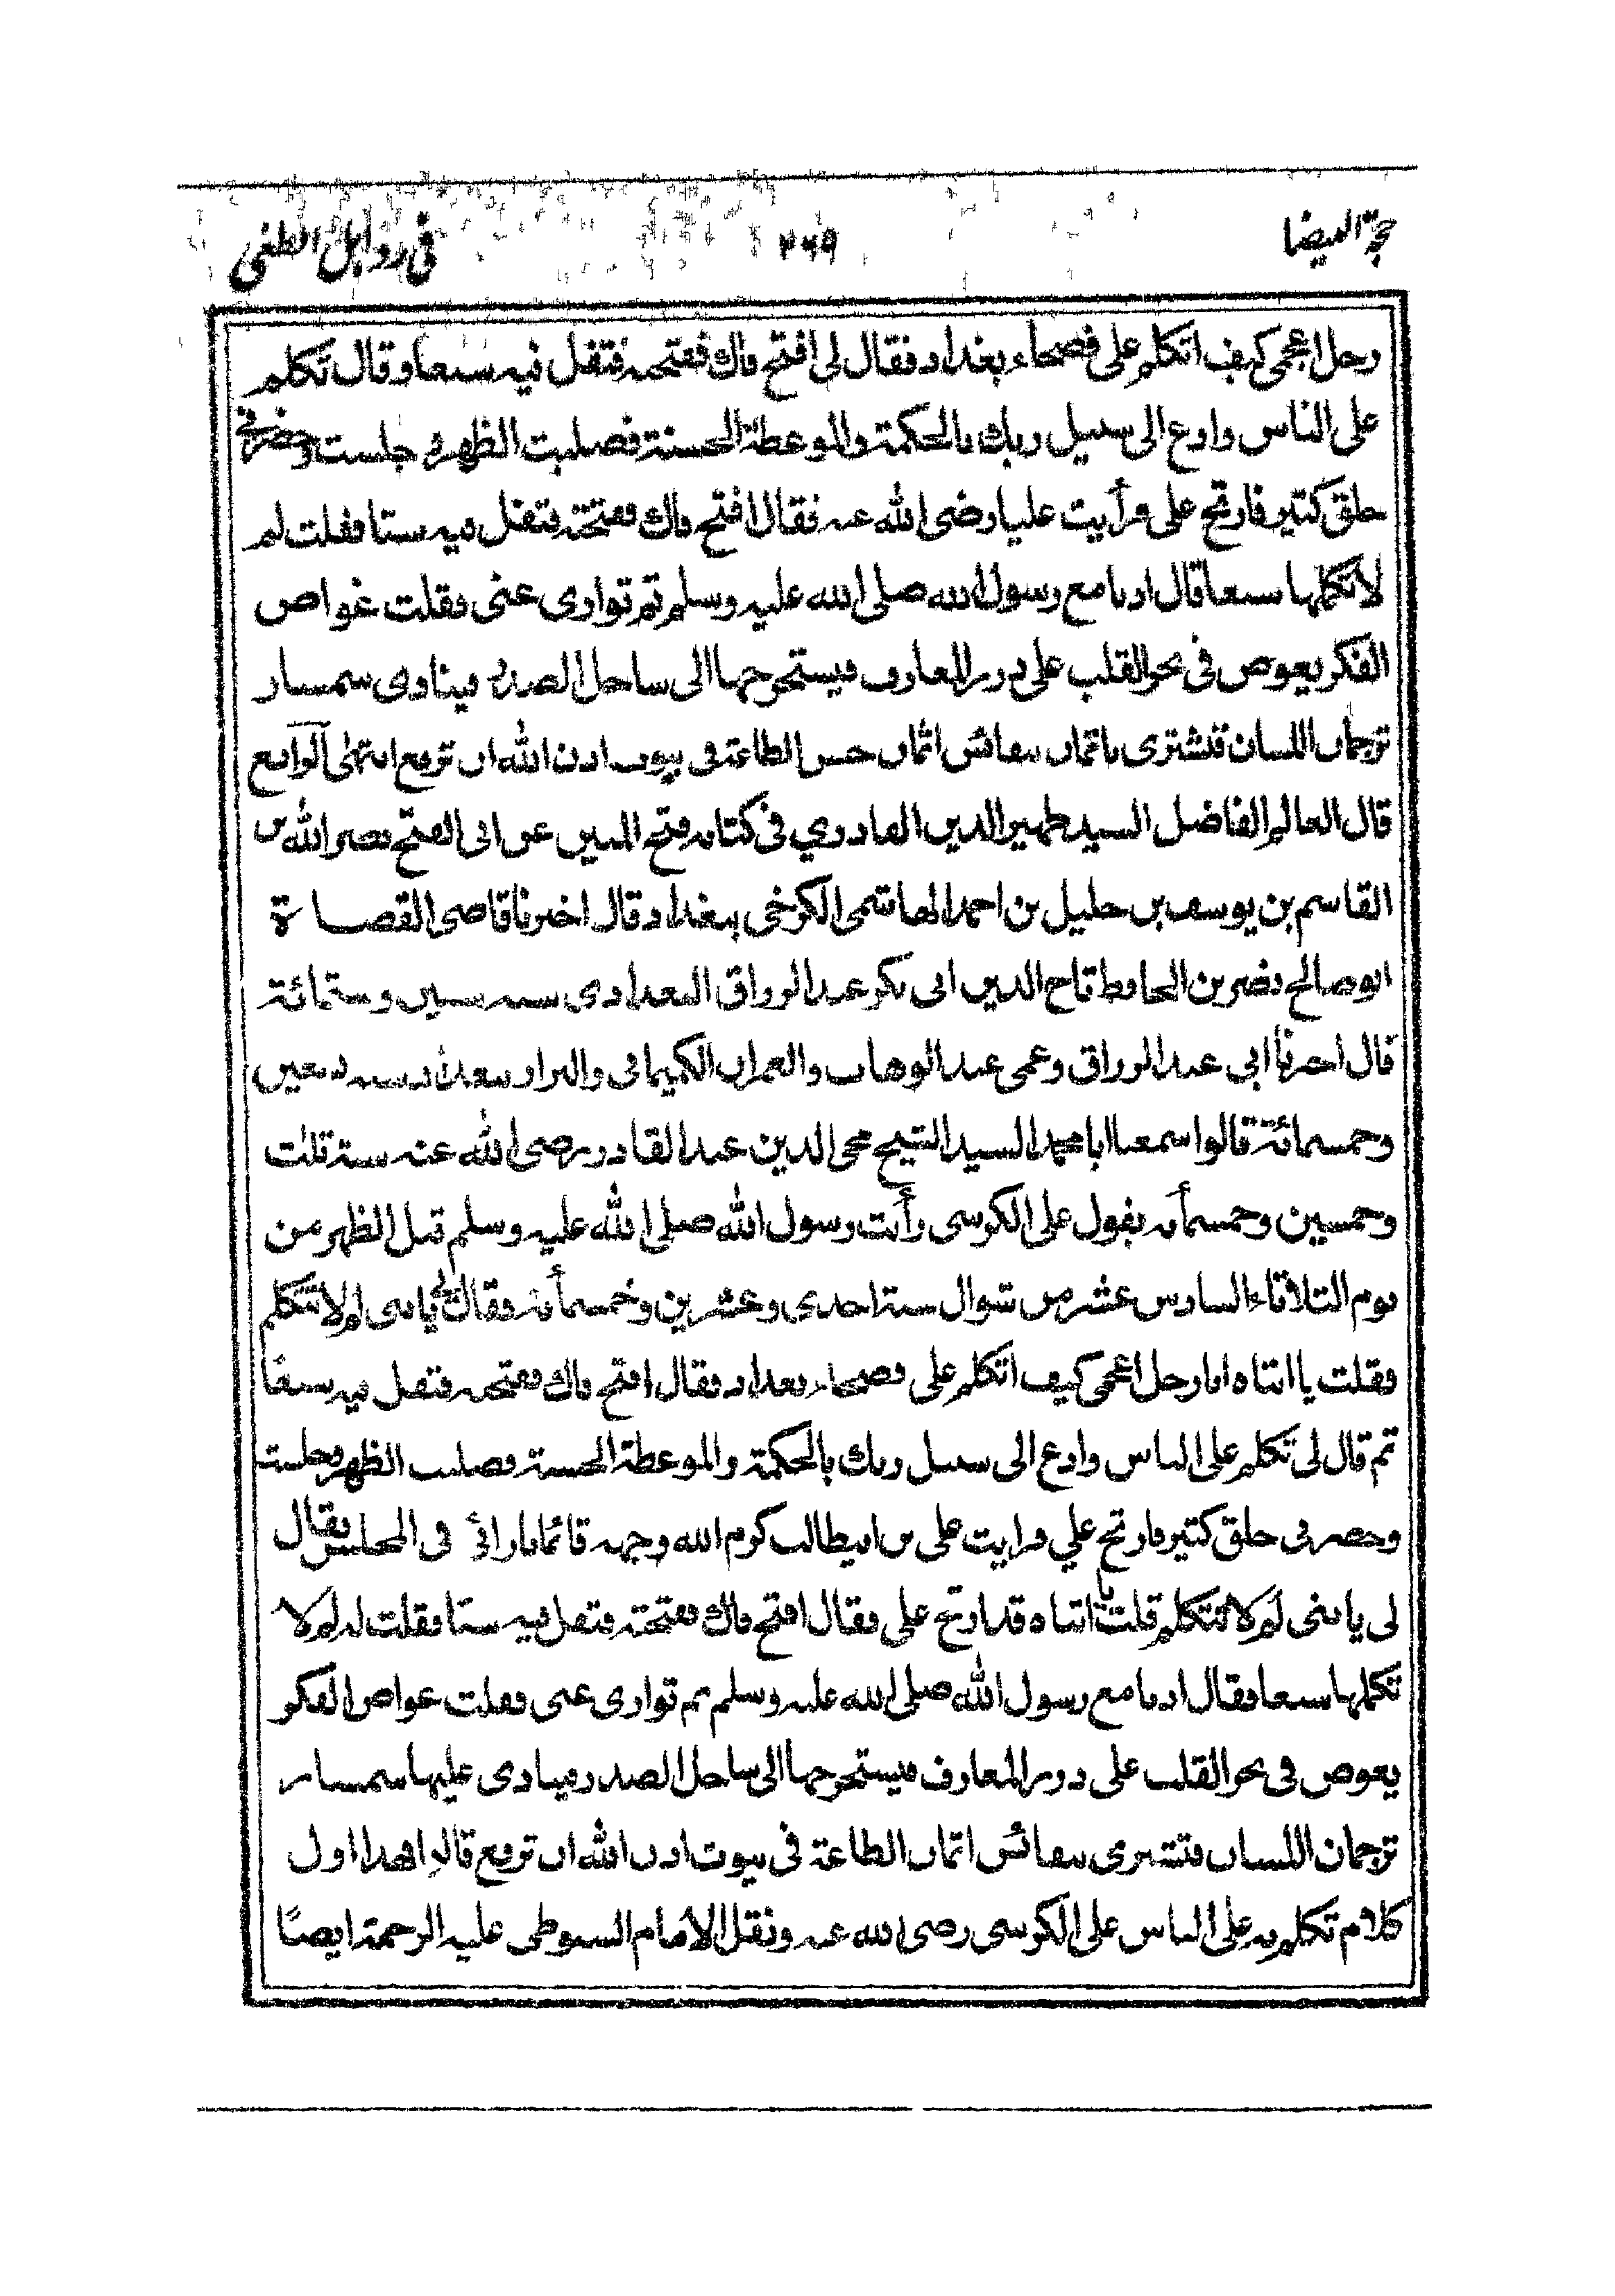 حجة البيضا ٢٦٩ في رد اهل الطغى
رجل اعجمي كيف اتكلم على فصحاء بغداد فقال لي افتح فاك ففتحته فتفل فيه سبعا وقال تكلم
على الناس وادع الى سبيل ربك بالحكمة والموعظة الحسنة فصليت الظهر و جلست وحضرني
خلق كثير فارتج على فرأيت عليا رضى الله عنه فقال افتح فاك ففتحته فتفل فيه ستا فقلت لم
لا تكملها سبعا قال ادبا مع رسول الله صلى الله عليه وسلم ثم توارى عنى فقلت غواص
الفكر يغوص في بحر القلب على درر المعارف فيستخرجها الى ساحل الصدر فينادى سمسار
ترجمان اللسان فتشترى باثمان نفائس اثمان حسن الطاعة في بيوت اذن الله ان ترفع انتهى
قال العالم الفاضل السيد ظهير الدين القادري في كتابه فتح المبين عن ابى الفتح نصر الله بن
القاسم بن يوسف بن خليل بن احمد الهاشمى الكرخى ببغداد قال اخبرنا قاضى القضاة
ابو صالح نصر بن الحافظ تاج الدين ابى بكر عبد الرزاق البغدادى سنه ستين وستمائة
قال اخبرنا ابي عبد الرزاق وعمى عبد الوهاب والعمران الكيمانى والبزار ببغداد سنه تسعين
وخمسمائة قالوا سمعنا ابا محمد السيد الشيخ محى الدين عبد القادر رضى الله عنه سنة ثلث
وخمسين وخمسمأة يقول على الكرسى رأيت رسول الله صلى الله عليه وسلم قبل الظهر من
يوم الثلاثاء السادس عشر من شوال سنة احدى وعشرين وخمسمأة فقال لي يا بنى لم لا تتكلم
فقلت يا ابتاه انا رجل اعجمى كيف اتكلم على فصحاء بغداد فقال افتح فاك ففتحته فتفل فيه سبعًا
ثم قال لى تكلم على الناس وادع الى سبيل ربك بالحكمة والموعظة الحسنة فصليت الظهر وجلست
وحضرنى خلق كثير فارتج علي فرايت على بن ابيطالب كرم الله وجهه قائما بازائى في المجلس فقال
لى يا بنى لم لا تتكلم قلت يا ابتاه قد ارتج على فقال افتح فاك ففتحته فتفل فيه ستا فقلت له لم لا
تكملها سبعا فقال ادبا مع رسول الله صلى الله عليه وسلم ثم توارى عنى فقلت غواص الفكر
يغوص في بحر القلب على درر المعارف فيستخرجها الى ساحل الصدر فينادى عليها سمسار
ترجمان اللسان فتشترى بنفائس اثمان الطاعة في بيوت اذن الله ان ترفع قالوا هذا اول
كلام تكلم به على الناس على الكرسى رضى الله عنه ونقل الامام السيوطى عليه الرحمة ايضًا